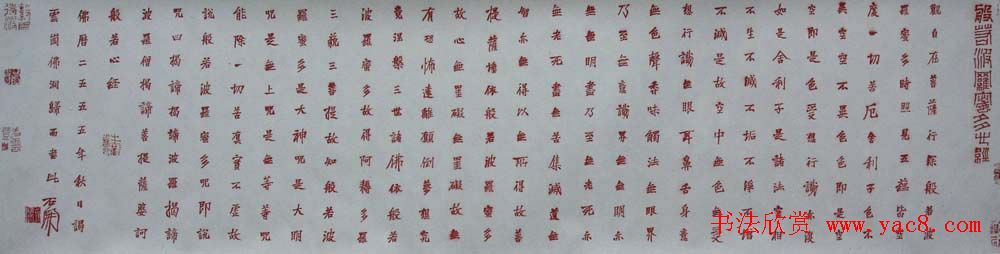 般若波羅蜜多心經
觀自在菩薩行深般若波
羅蜜多時照見五蘊皆空
度一切苦厄舍利子色不
異空空不異色色即是空
空即是色受想行識亦復
如是舍利子是諸法空相
不生不滅不垢不淨不增
不減是故空中無色無受
想行識無眼耳鼻舌身意
無色聲香味觸法無眼界
乃至無意識界無無明亦
無無明盡乃至無老死亦
無老死盡無苦集滅道無
智亦無得以無所得故菩
提薩埵依般若波羅蜜多
故心無罣礙無罣礙故無
有恐怖遠離顛倒夢想究
竟涅槃三世諸佛依般若
波羅蜜多故得阿耨多羅
三藐三菩提故知般若波
羅蜜多是大神呪是大明
呪是無上呪是無等等呪
能除一切苦真實不虛故
說般若波羅蜜多呪即說
呪曰揭諦揭諦波羅揭諦
波羅僧揭諦菩提薩婆訶
般若心經
佛曆二五五五年秋日謁
雲崗佛洞歸而書此
书法欣赏 www.yac8.com